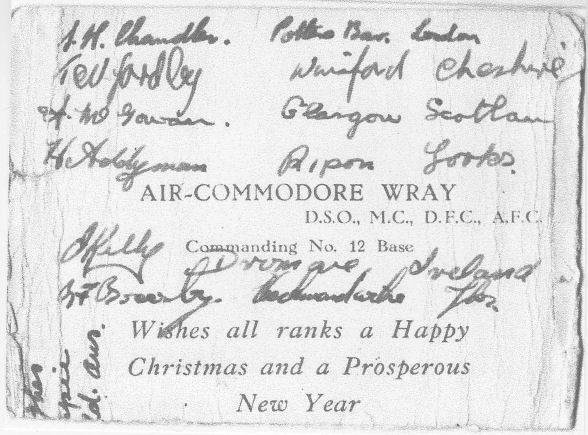 J. H. Chandler. Potters Bar. London
Ted Winsford Cheshire
McGowan. Glasgow Scotlan
H Addyman Ripon Yorks.
AIR-COMMODORE WRAY
D.S.O., M.C., D.F.C., A.F.C.
Commanding No. 12 Base
J Kelly Dromore Ireland
Wishes all ranks a Happy
Christmas and a Prosperous
New Year